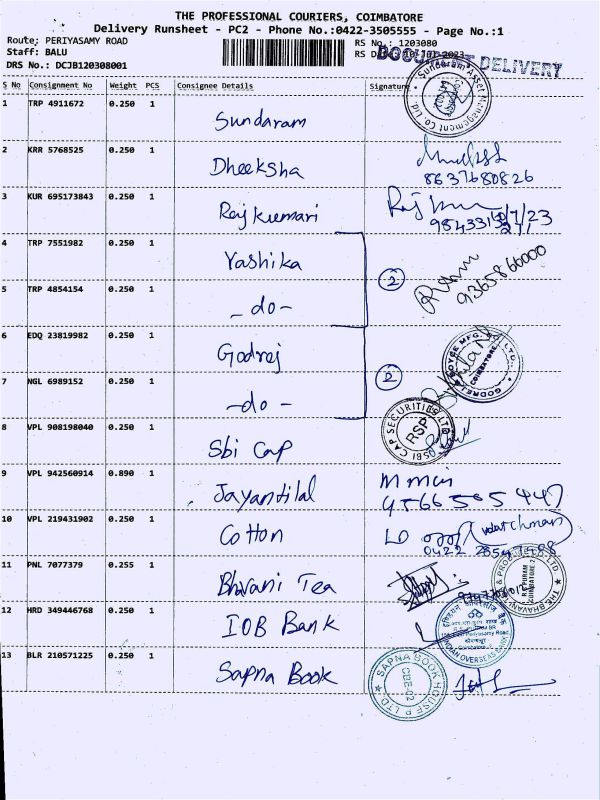 THE PROFESSIONAL COURIERS, COIMBATORE
Delivery Runsheet - PC2 - Phone No.:0422-3505555 - Page No.:1
Route: PERIYASAMY ROAD RS No.: 1203080
Staff: BALU RS 10-Jul-2023
DRS No.: DCJB120308001 DELIVERY
S No Consignment No Weight PCS Consignee Details Signature
1 TRP 4911672 0.250 1 Sundaram
Sundaram Asset Management Co. Ltd.
2 KRR 5768525 0.250 1 Dheeksha
8637680826
3 KUR 695173843 0.250 1 Rajkumari
4 TRP 7551982 0.250 1 Yashika
5 TRP 4854154 0.250 1 - do - 2
9365866000
6 EDQ 23819982 0.250 1 Godrej
COIMBATORE
7 NGL 6989152 0.250 1 - do - 2
8 VPL 908198040 0.250 1 Sbi Cap
SBI CAP SECURITIES LTD
RSP
9 VPL 942560914 0.890 1 Jayantilal
10 VPL 219431902 0.250 1 Cotton
11 PNL 7077379 0.255 1 Bhvani Tea
R.S. PURAM
COIMBATORE-2
12 HRD 349446768 0.250 1 IOB Bank
INDIAN OVERSEAS BANK
13 BLR 210571225 0.250 1 Sapna Book
SAPNA BOOK HOUSE P LTD.
CBE-02